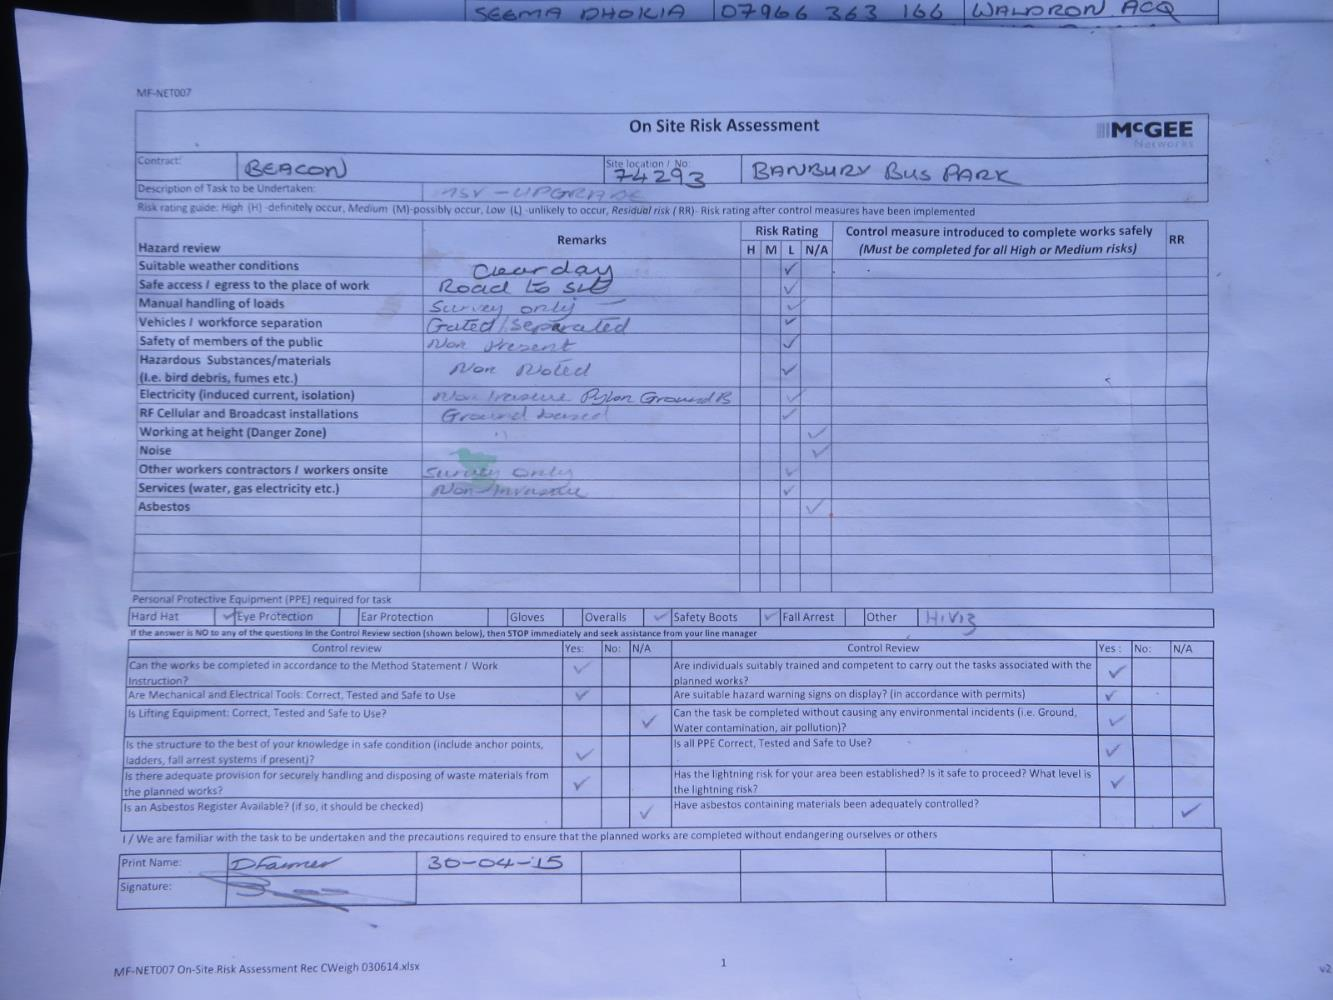 SEEMA DHOKIA 07966 363 166 WALDRON ACQ
MF-NET007
On Site Risk Assessment
McGEE
Networks
Contract: BEACON Site location / No: 74293 BANBURY BUS PARK
Description of Task to be Undertaken: MSV - UPGRADE
Risk rating guide: High (H) -definitely occur, Medium (M)-possibly occur, Low (L) -unlikely to occur, Residual risk ( RR)- Risk rating after control measures have been implemented
Hazard review Remarks Risk Rating Control measure introduced to complete works safely RR
H M L N/A (Must be completed for all High or Medium risks)
Suitable weather conditions Clear day ✓
Safe access / egress to the place of work Road to site ✓
Manual handling of loads Survey only ✓
Vehicles / workforce separation Gated/Separated ✓
Safety of members of the public Non Present ✓
Hazardous Substances/materials
(I.e. bird debris, fumes etc.) Non Noted ✓
Electricity (induced current, isolation) Pylon Ground ✓
RF Cellular and Broadcast installations Ground based ✓
Working at height (Danger Zone) ✓
Noise ✓
Other workers contractors / workers onsite Survey only ✓
Services (water, gas electricity etc.) Non-Invasive ✓
Asbestos ✓
Personal Protective Equipment (PPE) required for task
Hard Hat ✓ Eye Protection Ear Protection Gloves Overalls ✓ Safety Boots ✓ Fall Arrest Other Hi Viz
If the answer is NO to any of the questions in the Control Review section (shown below), then STOP immediately and seek assistance from your line manager
Control review Yes: No: N/A Control Review Yes : No: N/A
Can the works be completed in accordance to the Method Statement / Work
Instruction? ✓
Are individuals suitably trained and competent to carry out the tasks associated with the
planned works? ✓
Are Mechanical and Electrical Tools: Correct, Tested and Safe to Use ✓
Are suitable hazard warning signs on display? (in accordance with permits) ✓
Is Lifting Equipment: Correct, Tested and Safe to Use? ✓
Can the task be completed without causing any environmental incidents (i.e. Ground,
Water contamination, air pollution)? ✓
Is the structure to the best of your knowledge in safe condition (include anchor points,
ladders, fall arrest systems if present)? ✓
Is all PPE Correct, Tested and Safe to Use? ✓
Is there adequate provision for securely handling and disposing of waste materials from
the planned works? ✓
Has the lightning risk for your area been established? Is it safe to proceed? What level is
the lightning risk? ✓
Is an Asbestos Register Available? (if so, it should be checked) ✓
Have asbestos containing materials been adequately controlled? ✓
I / We are familiar with the task to be undertaken and the precautions required to ensure that the planned works are completed without endangering ourselves or others
Print Name: D Farmer 30-04-15
Signature:
MF-NET007 On-Site Risk Assessment Rec CWeigh 030614.xlsx
1
v2